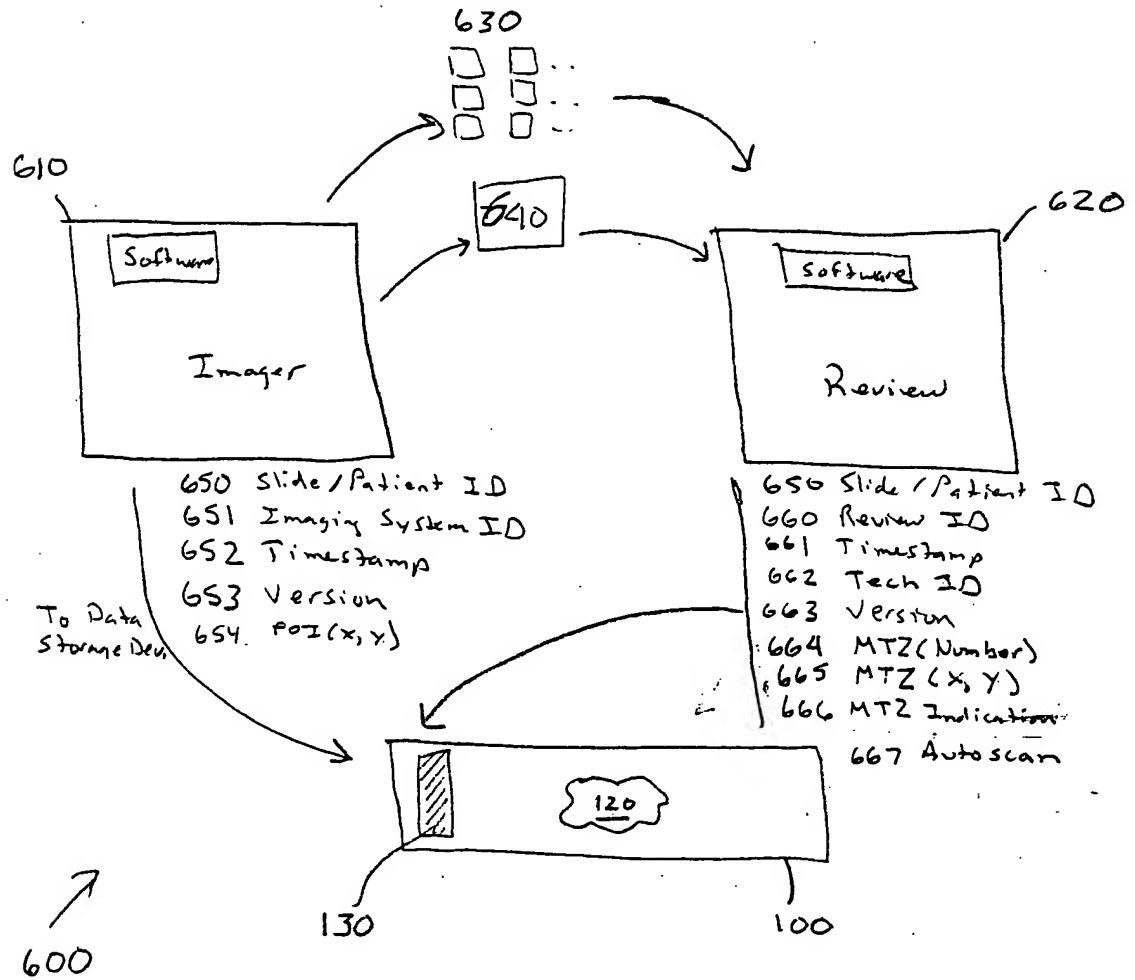 630
610
640
620
Software
Software
Imager
Review
650 Slide/Patient ID
651 Imaging System ID
652 Timestamp
653 Version
654. POI(x,y)
To Data
Storage Dev.
650 Slide/Patient ID
660 Review ID
661 Timestamp
662 Tech ID
663 Version
664 MTZ(Number)
665 MTZ (X, Y)
666 MTZ Indication
667 Autoscan
120
130
100
600